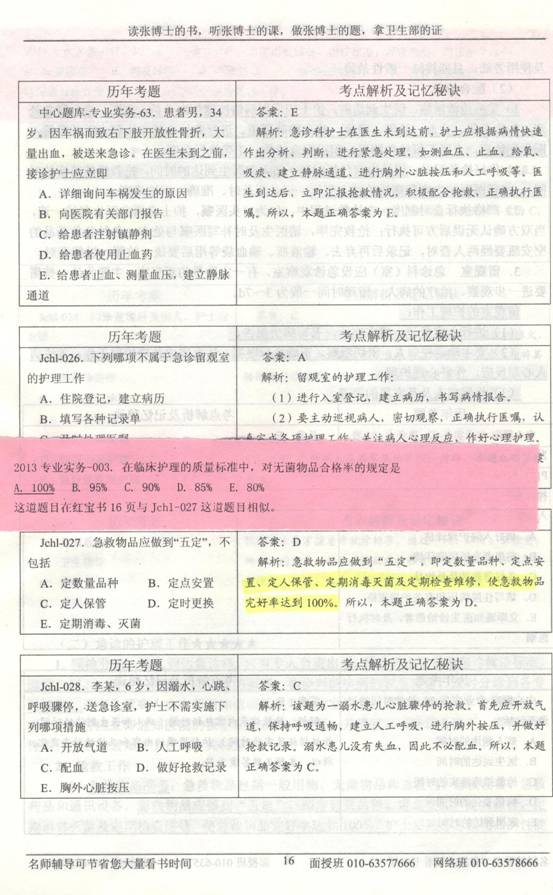 读张博士的书，听张博士的课，做张博士的题，拿卫生部的证
历年考题
考点解析及记忆秘诀
中心题库-专业实务-63．患者男，34
岁。因车祸而致右下肢开放性骨折，大
量出血，被送来急诊。在医生未到之前，
接诊护士应立即
A．详细询问车祸发生的原因
B．向医院有关部门报告
C．给患者注射镇静剂
D．给患者使用止血药
E．给患者止血、测量血压，建立静脉
通道
答案：E
解析：急诊科护士在医生未到达前，护士应根据病情快速
作出分析、判断，进行紧急处理，如测血压、止血、给氧、
吸痰、建立静脉通道、进行胸外心脏按压和人工呼吸等；医
生到达后，立即汇报抢救情况，积极配合抢救，正确执行医
嘱，所以，本题正确答案为 E。
历年考题
考点解析及记忆秘诀
Jchl-026．下列哪项不属于急诊留观室
的护理工作
A．住院登记，建立病历
B．填写各种记录单
答案：A
解析：留观室的护理工作：
（1）进行入室登记，建立病历，书写病情报告。
（2）要主动巡视病人，密切观察，正确执行医嘱，认
真完成各项护理工作，关注病人心理反应，作好心理护理。
2013 专业实务-003．在临床护理的质量标准中，对无菌物品合格率的规定是
A．100% B．95% C．90% D．85% E．80%
这道题目在红宝书 16 页与 Jchl-027 这道题目相似。
Jchl-027．急救物品应做到“五定”，不
包括
A．定数量品种 B．定点安置
C．定人保管 D．定时更换
E．定期消毒、灭菌
答案：D
解析：急救物品应做到“五定”，即定数量品种、定点安
置、定人保管、定期消毒灭菌及定期检查维修，使急救物品
完好率达到100%。所以，本题正确答案为 D。
历年考题
考点解析及记忆秘诀
Jchl-028．李某，6 岁，因溺水，心跳、
呼吸骤停，送急诊室，护士不需实施下
列哪项措施
A．开放气道 B．人工呼吸
C．配血 D．做好抢救记录
E．胸外心脏按压
答案：C
解析：该题为一溺水患儿心脏骤停的抢救，首先应开放气
道，保持呼吸通畅，建立人工呼吸，进行胸外按压，并做好
抢救记录，溺水患儿没有失血，因此不必配血，所以，本题
正确答案为 C。
名师辅导可节省您大量看书时间 16 面授班 010-63577666 网络班 010-63578666